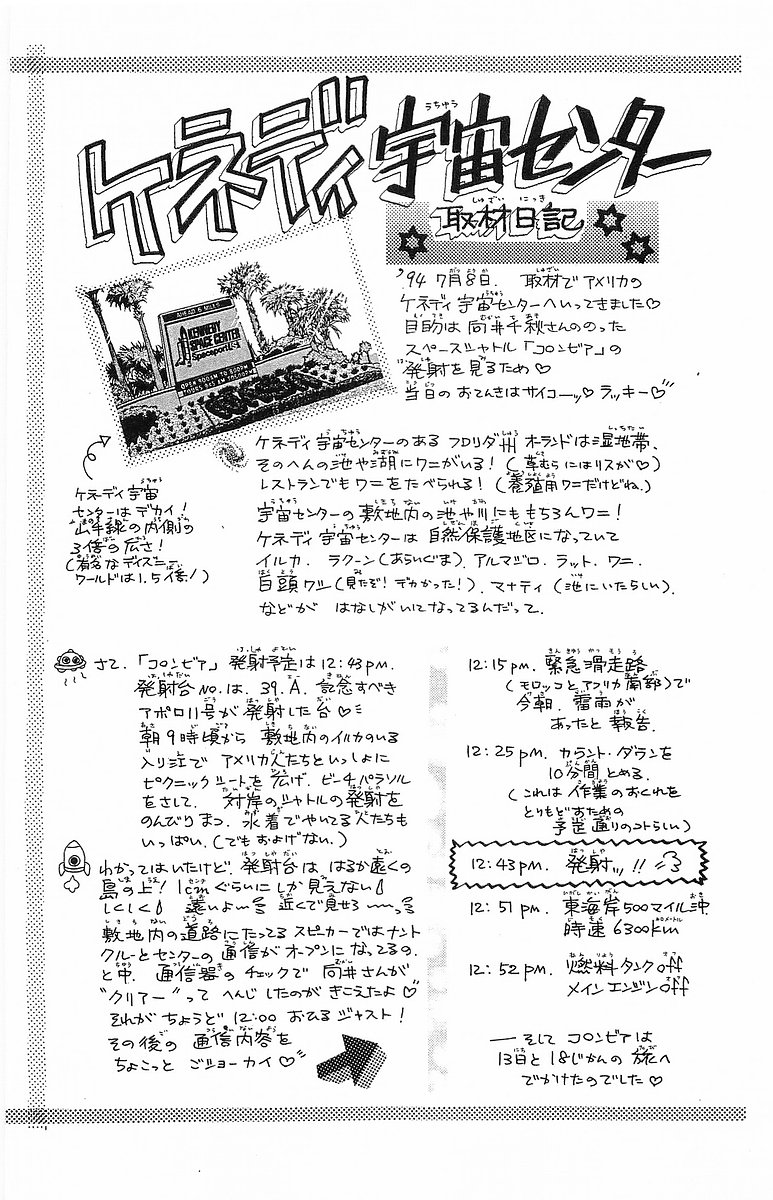 ケネディ宇宙センター
取材日記
'94 7月8日. 取材でアメリカの
ケネディ宇宙センターへいってきました♡
目的は向井千秋さんののった
スペースシャトル「コロンビア」の
発射を見るため♡
当日のおてんきはサイコーッ♡ラッキー♡
KENNEDY
SPACE CENTER
Spaceport USA
ケネディ宇宙
センターはデカイ!
山手線の内側の
3倍の広さ!
(有名なディズニー
ワールドは1.5倍!)
ケネディ宇宙センターのあるフロリダ州オーランドは湿地帯、
そのへんの池や湖にワニがいる! (草むらにはリスが♡)
レストランでもワニをたべられる! (養殖用ワニだけどね.)
宇宙センターの敷地内の池や川にももちろんワニ!
ケネディ宇宙センターは自然保護地区になっていて
イルカ. ラクーン(あらいぐま). アルマジロ. ラット. ワニ.
白頭ワシ(見たぞ! デカかった!). マナティ(池にいたらしい).
などが はなしがいになってるんだって.
さて.「コロンビア」発射予定は12:43pm.
発射台No.は. 39.A. 記念すべき
アポロ11号が発射した台♡
朝9時頃から敷地内のイルカのいる
入り江で アメリカ人たちといっしょに
ピクニックシートを広げ. ビーチパラソル
をさして. 対岸のシャトルの発射を
のんびりまつ. 水着でやいてる人たちも
いっぱい. (でもおよげない.)
わかってはいたけど. 発射台は はるか遠くの
島の上! 1cmぐらいにしか見えない
しくしく 遠いよー 近くで見せろーっ
敷地内の道路にたってるスピーカーではナント
クルーとセンターの通信がオープンになってるの.
と中. 通信器のチェックで 向井さんが
"クリアー"って へんじしたのがきこえたよ♡
それがちょうど12:00おひるジャスト!
その後の 通信内容を
ちょこっと ごショーカイ♡
12:15pm. 緊急滑走路
(モロッコとアフリカ南部)で
今朝. 雷雨が
あったと 報告.
12:25pm. カウント・ダウンを
10分間とめる.
(これは作業のおくれを
とりもどすための
予定通りのコトらしい)
12:43pm. 発射ッ!!
12:51pm. 東海岸500マイル沖
時速6300km
12:52pm. 燃料タンクoff
メインエンジンoff
— そしてコロンビアは
13日と18じかんの旅へ
でかけたのでした♡